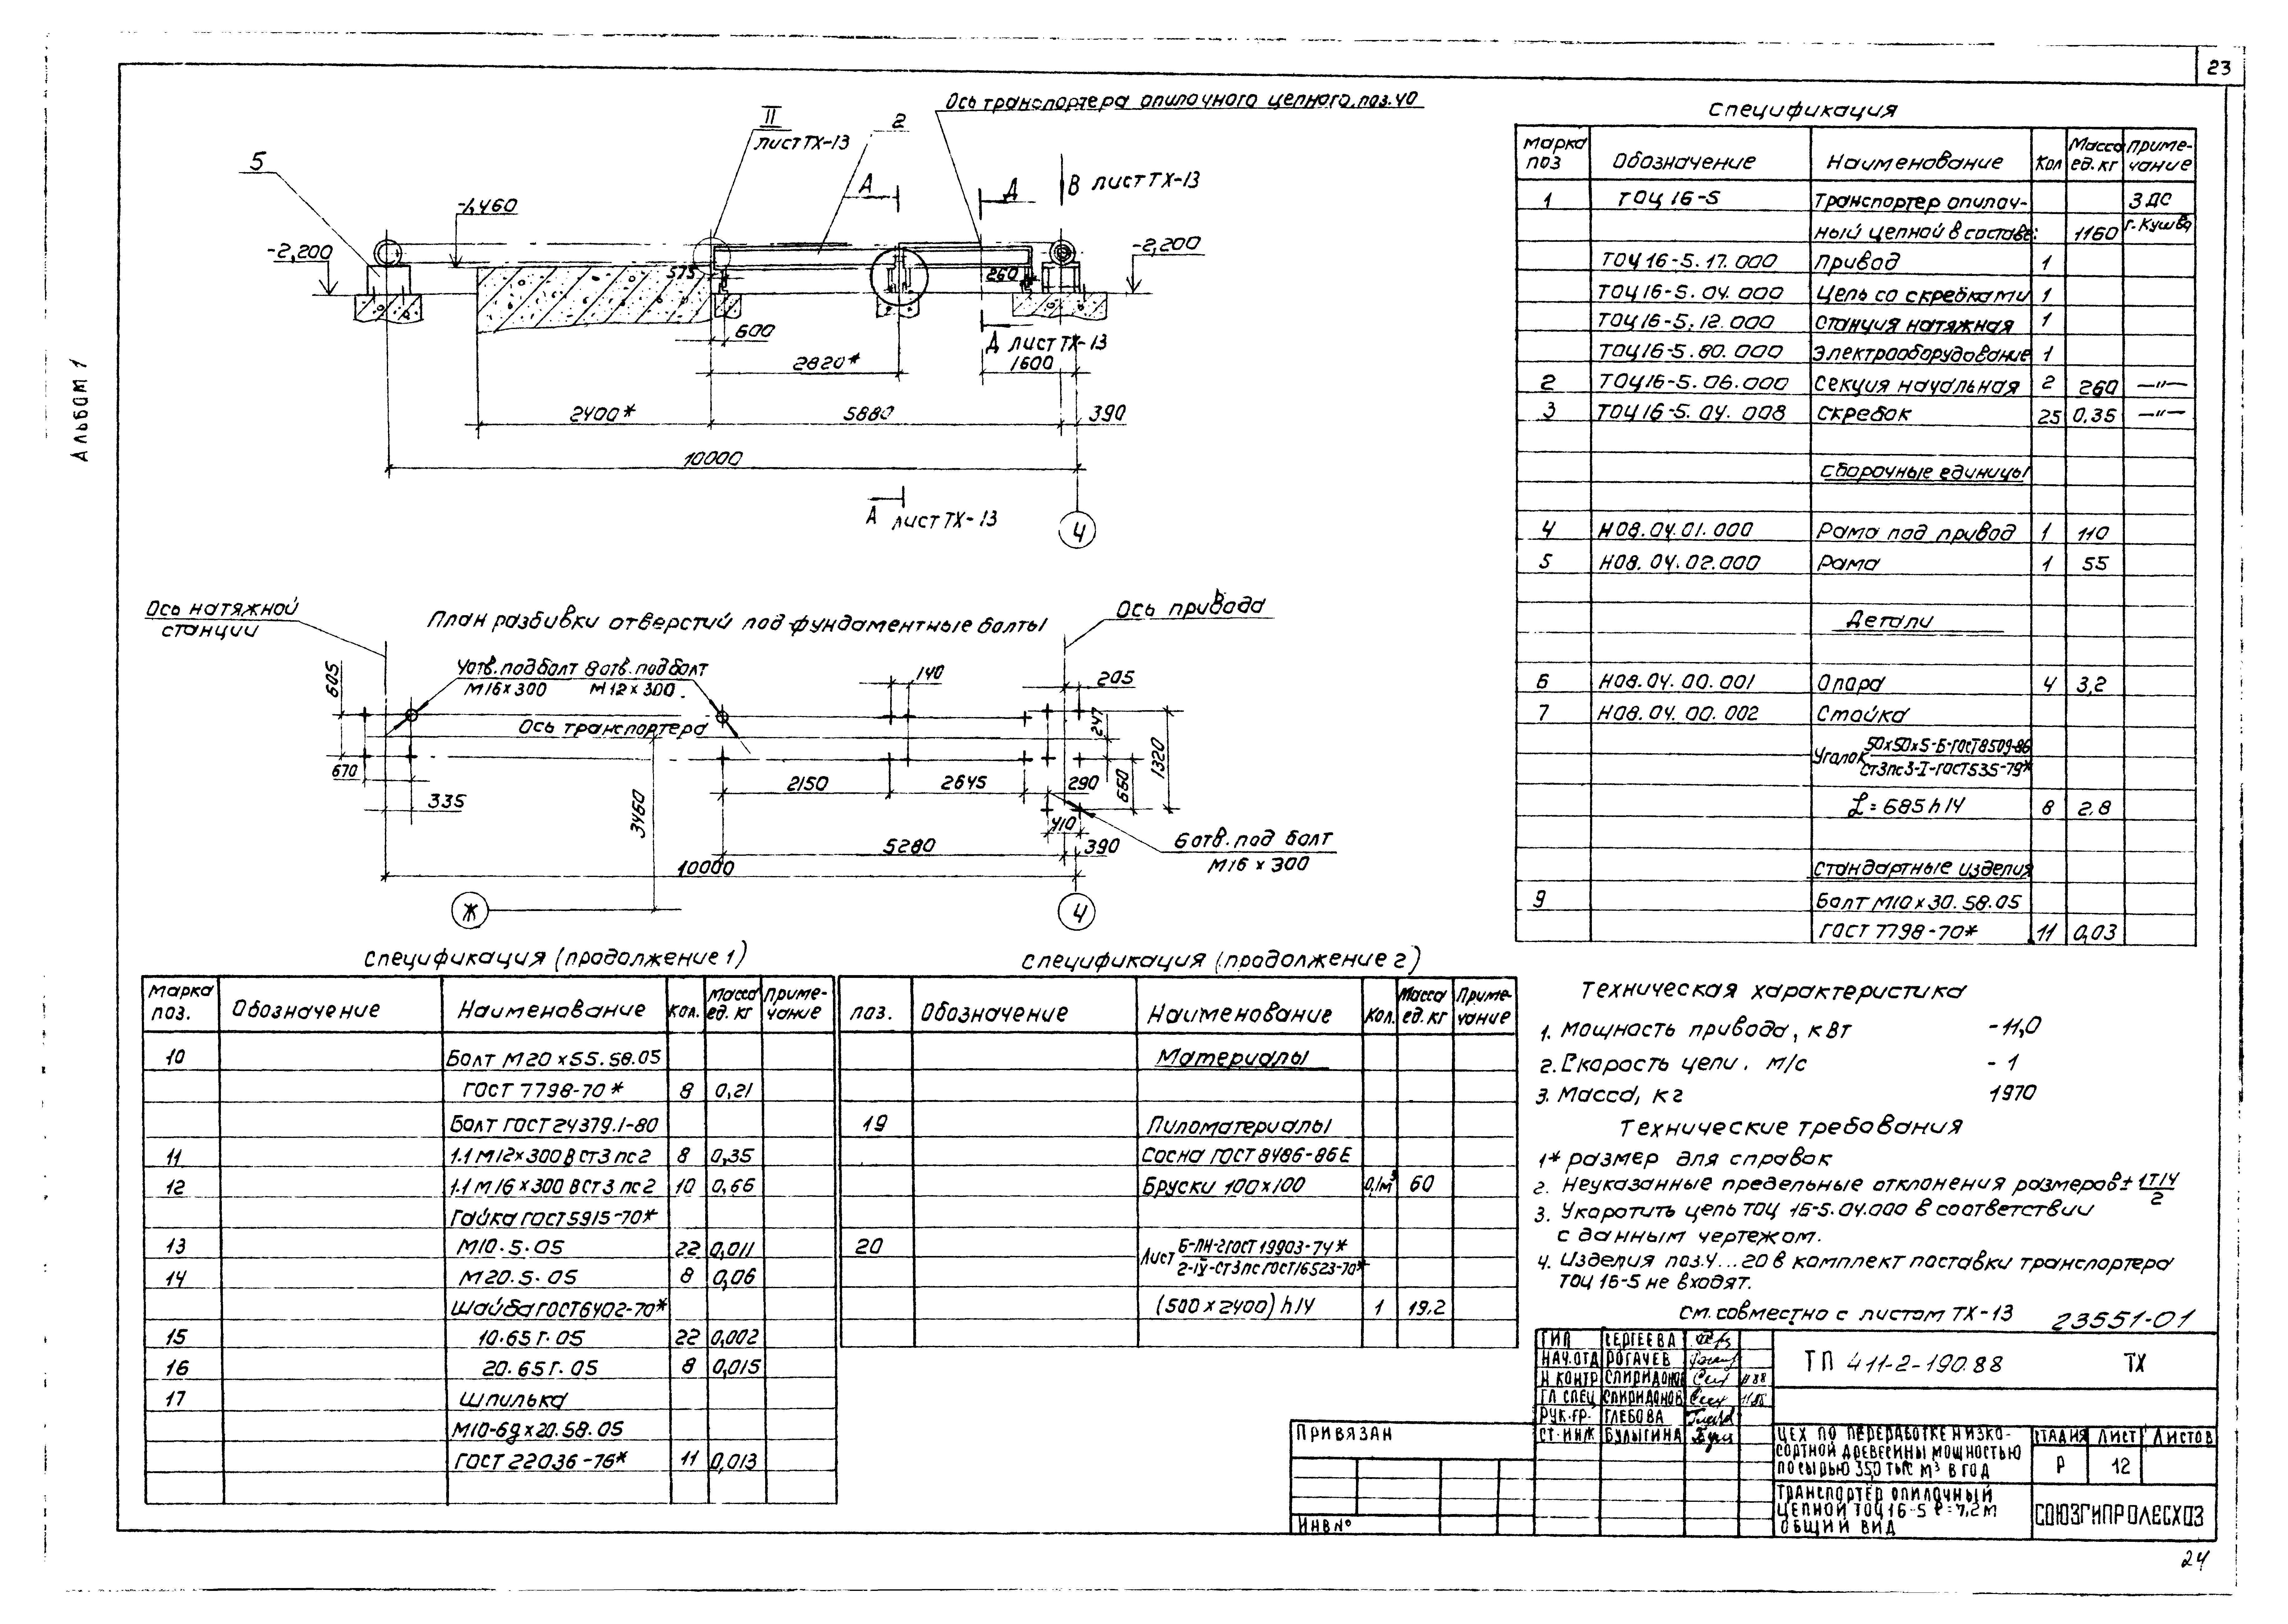 23
Альбом 1
Ось транспортера опилочного цепного, поз. 40
II
лист ТХ-13
2
5
А
Д
В лист ТХ-13
-1,460
-2,200
-2,200
575
260
600
Д лист ТХ-13
2820*
1600
2400*
5880
390
10000
А лист ТХ-13
4
План разбивки отверстий под фундаментные болты
Ось натяжной
станции
Ось привода
4отв. под болт 8 отв. под болт
М16×300 М12×300
140
205
605
Ось транспортера
247
1320
670
335
2150
2645
290
660
3460
410
5280
390
6 отв. под болт
М16×300
10000
Ж
4
Спецификация
Марка поз Обозначение Наименование Кол Масса ед. кг Примечание
1 ТОЦ 16-5 Транспортер опилоч- ЗДС
ный цепной в составе: 1160 г. Кушва
ТОЦ 16-5.17.000 Привод 1
ТОЦ 16-5.04.000 Цепь со скребками 1
ТОЦ 16-5.12.000 Станция натяжная 1
ТОЦ 16-5.80.000 Электрооборудование 1
2 ТОЦ 16-5.06.000 Секция начальная 2 260 —"—
3 ТОЦ 16-5.04.008 Скребок 25 0,35 —"—
Сборочные единицы
4 Н08.04.01.000 Рама под привод 1 110
5 Н08.04.02.000 Рама 1 55
Детали
6 Н08.04.00.001 Опора 4 3,2
7 Н08.04.00.002 Стойка
Уголок 50×50×5-Б-ГОСТ 8509-86
Ст3пс3-I-ГОСТ535-79*
L=685 h14 8 2,8
Стандартные изделия
9 Болт М10×30.58.05
ГОСТ 7798-70* 11 0,03
Спецификация (продолжение 1)
Марка поз. Обозначение Наименование Кол. Масса ед. кг Примечание
10 Болт М20×55.58.05
ГОСТ 7798-70* 8 0,21
Болт ГОСТ 24379.1-80
11 1.1 М12×300 ВСт3пс2 8 0,35
12 1.1 М16×300 ВСт3пс2 10 0,66
Гайка ГОСТ 5915-70*
13 М10.5.05 22 0,011
14 М20.5.05 8 0,06
Шайба ГОСТ 6402-70*
15 10.65Г.05 22 0,002
16 20.65Г.05 8 0,015
17 Шпилька
М10-6g×20.58.05
ГОСТ 22036-76* 11 0,013
Спецификация (продолжение 2)
поз. Обозначение Наименование Кол. Масса ед. кг Примечание
Материалы
19 Пиломатериалы
Сосна ГОСТ 8486-86Е
Бруски 100×100 0,1м³ 60
20 Лист Б-ПН-2 ГОСТ 19903-74*
2-IV-Ст3пс ГОСТ 16523-70*
(500×2400) h14 1 19,2
Техническая характеристика
1. Мощность привода, кВт - 11,0
2. Скорость цепи, м/с - 1
3. Масса, кг 1970
Технические требования
1* размер для справок
2. Неуказанные предельные отклонения размеров ± IT14/2
3. Укоротить цепь ТОЦ 16-5.04.000 в соответствии
с данным чертежом.
4. Изделия поз.4...20 в комплект поставки транспортера
ТОЦ 16-5 не входят.
См. совместно с листом ТХ-13
23551-01
ГИП СЕРГЕЕВА
НАЧ.ОТД РОГАЧЕВ
Н КОНТР СПИРИДОНОВ 11.88
ГЛ СПЕЦ СПИРИДОНОВ 11.88
РУК.ГР. ГЛЕБОВА
СТ.ИНЖ БУЛЫГИНА
ТП 411-2-190.88 ТХ
ПРИВЯЗАН
ИНВ №
ЦЕХ ПО ПЕРЕРАБОТКЕ НИЗКО-
СОРТНОЙ ДРЕВЕСИНЫ МОЩНОСТЬЮ
ПО СЫРЬЮ 35,0 ТЫС М³ В ГОД
СТАДИЯ ЛИСТ ЛИСТОВ
Р 12
ТРАНСПОРТЕР ОПИЛОЧНЫЙ
ЦЕПНОЙ ТОЦ 16-5 ℓ=7,2М
ОБЩИЙ ВИД
СОЮЗГИПРОЛЕСХОЗ
24